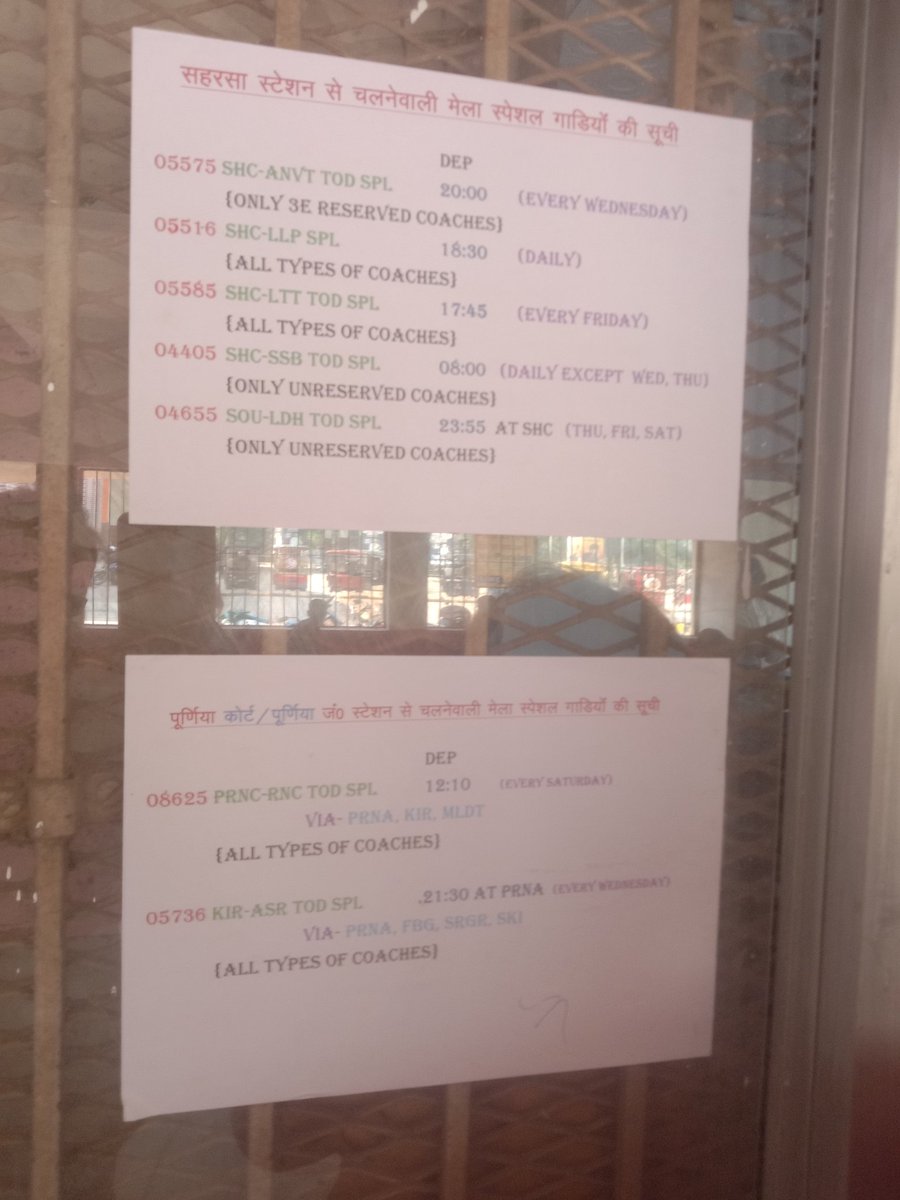 सहरसा स्टेशन से चलनेवाली मेला स्पेशल गाडियों की सूची
DEP
05575 SHC-ANVT TOD SPL 20:00 (EVERY WEDNESDAY)
{ONLY 3E RESERVED COACHES}
05516 SHC-LLP SPL 18:30 (DAILY)
{ALL TYPES OF COACHES}
05585 SHC-LTT TOD SPL 17:45 (EVERY FRIDAY)
{ALL TYPES OF COACHES}
04405 SHC-SSB TOD SPL 08:00 (DAILY EXCEPT WED, THU)
{ONLY UNRESERVED COACHES}
04655 SOU-LDH TOD SPL 23:55 AT SHC (THU, FRI, SAT)
{ONLY UNRESERVED COACHES}
पूर्णिया कोर्ट/पूर्णिया जं0 स्टेशन से चलनेवाली मेला स्पेशल गाडियों की सूची
DEP
08625 PRNC-RNC TOD SPL 12:10 (EVERY SATURDAY)
VIA- PRNA, KIR, MLDT
{ALL TYPES OF COACHES}
05736 KIR-ASR TOD SPL .21:30 AT PRNA (EVERY WEDNESDAY)
VIA- PRNA, FBG, SRGR, SKI
{ALL TYPES OF COACHES}